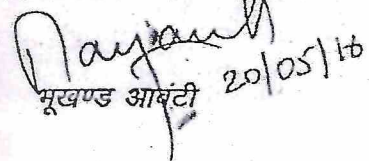 भूखण्ड आबंटी 20/05/16